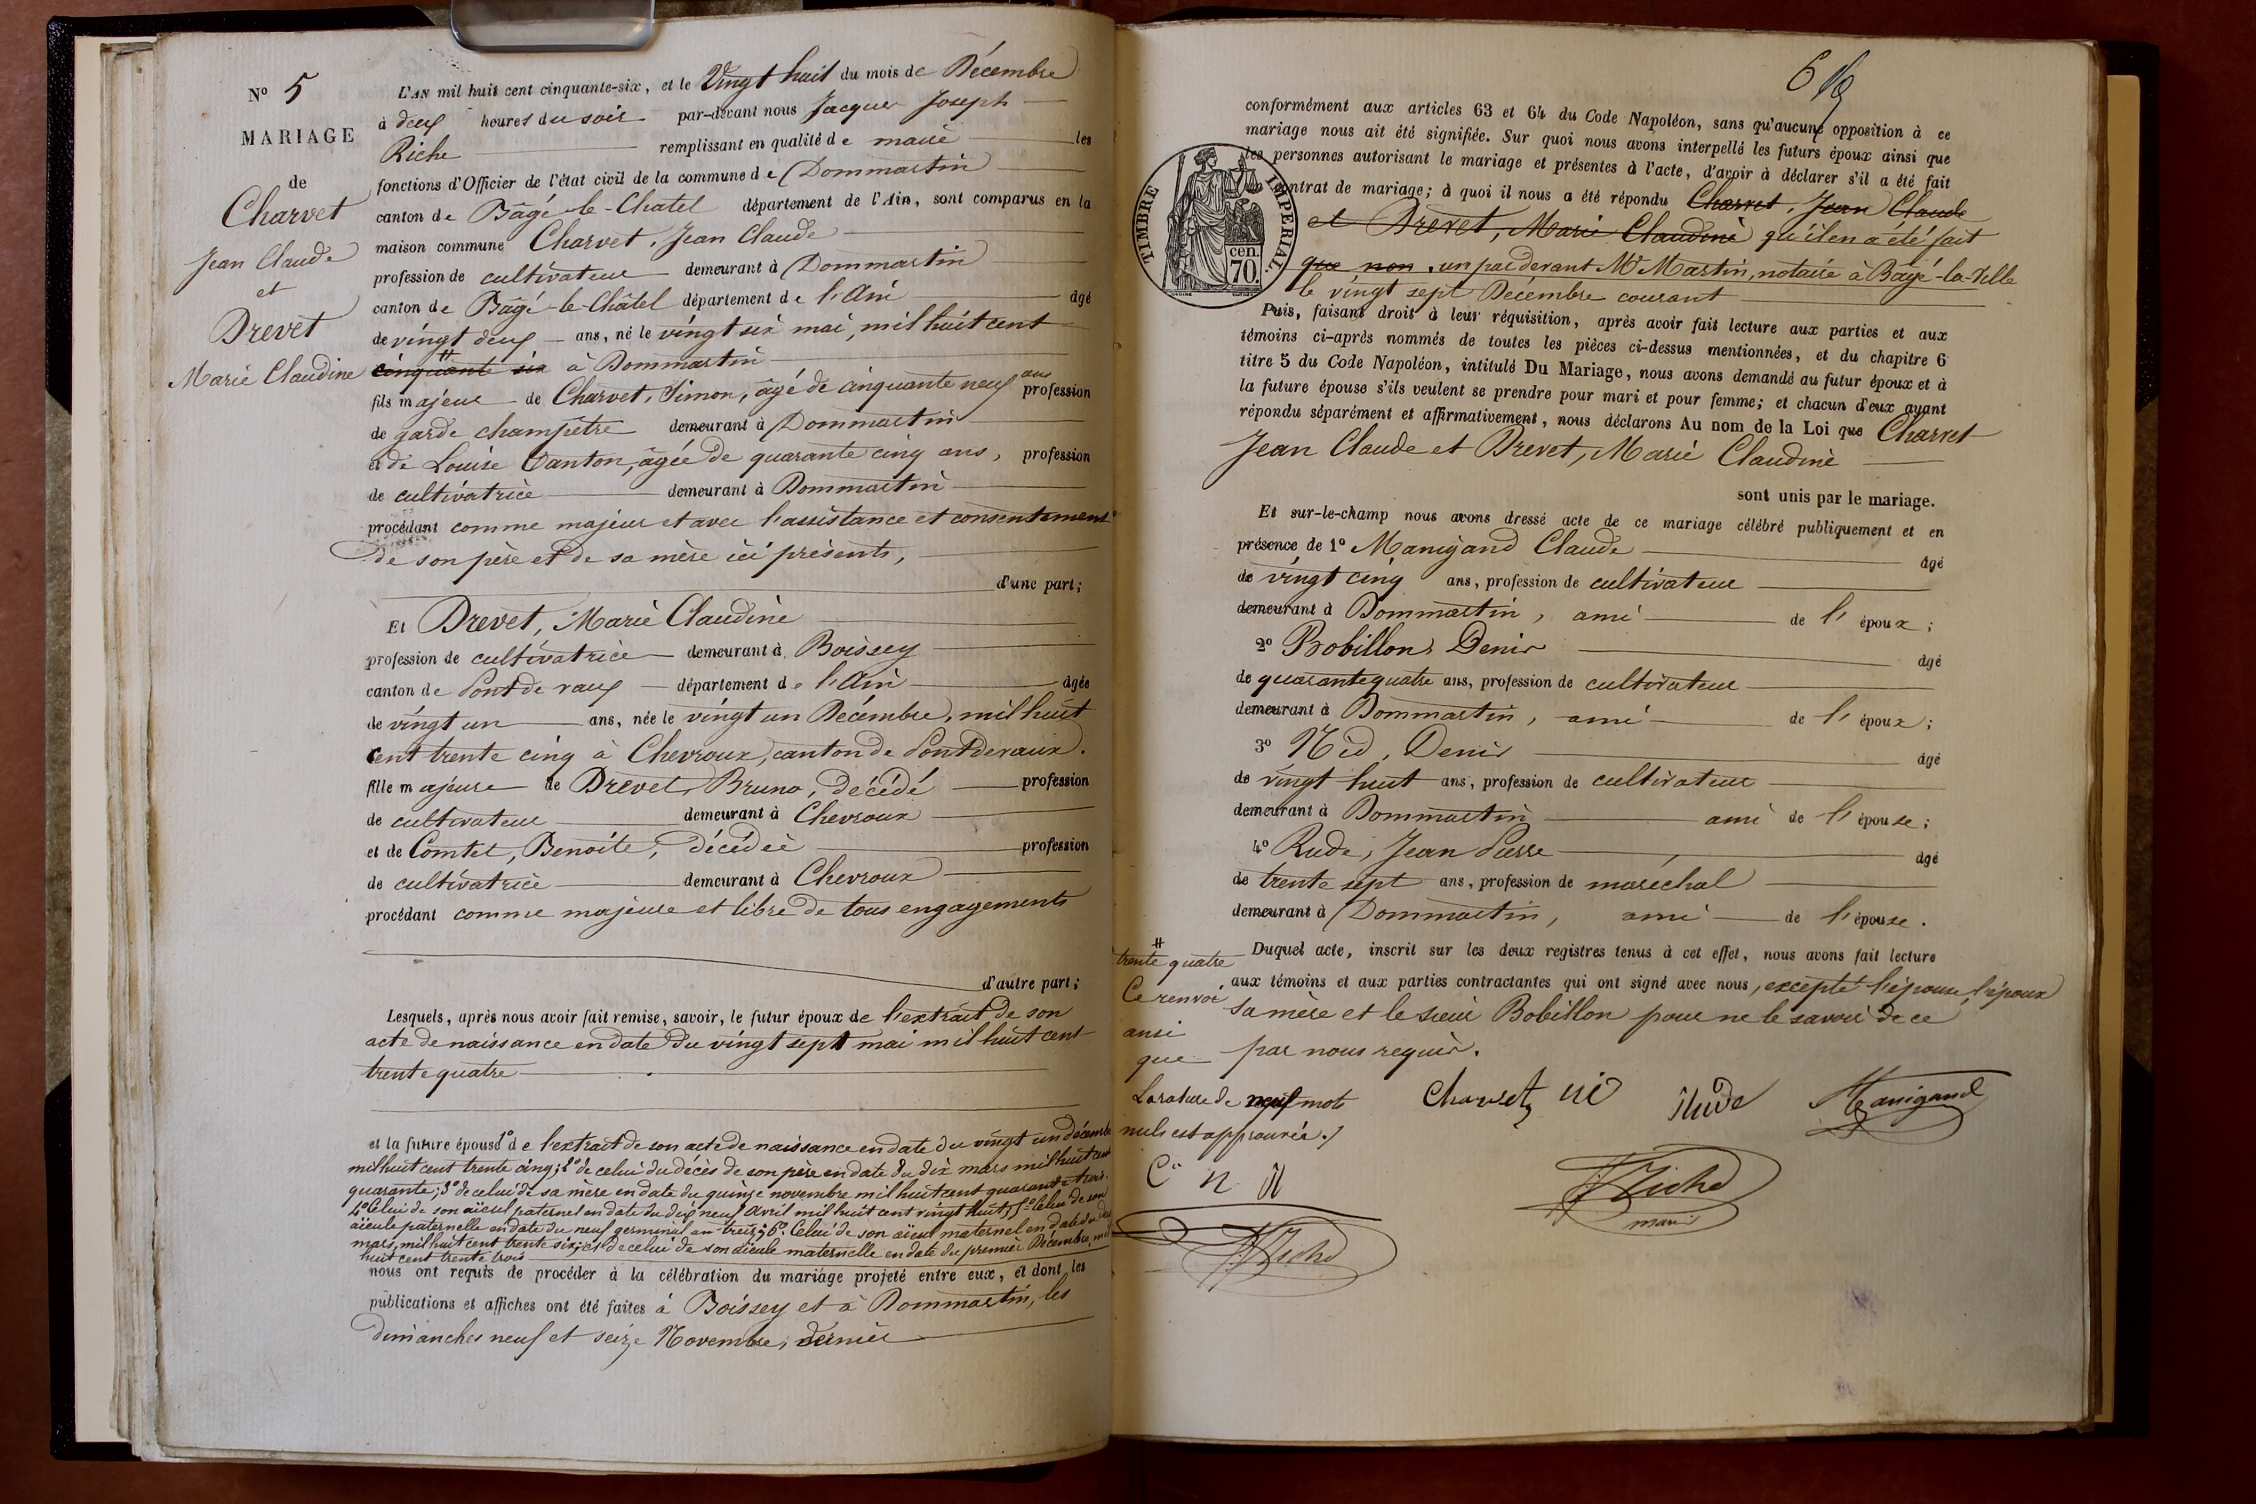 N° 5
MARIAGE
de
Charvet
Jean Claude
et
Drevet
Marie Claudine
L'AN mil huit cent cinquante-six, et le Vingt huit du mois de Décembre
à deux heures du soir par-devant nous Jacques Joseph
Riche remplissant en qualité de maire les
fonctions d'Officier de l'état civil de la commune de Dommartin
canton de Bâgé-le-Chatel département de l'Ain, sont comparus en la
maison commune Charvet, Jean Claude
profession de cultivateur demeurant à Dommartin
canton de Bâgé-le-Châtel département de l'Ain âgé
de vingt deux ans, né le vingt six mai, mil huit cent
# cinquante six à Dommartin
fils majeur de Charvet, Simon, âgé de cinquante neuf ans profession
de garde champêtre demeurant à Dommartin
et de Louise Vanton, âgée de quarante cinq ans, profession
de cultivatrice demeurant à Dommartin
procédant comme majeur et avec l'assistance et consentement
de son père et de sa mère ici présents,
d'une part;
Et Drevet, Marie Claudine
profession de cultivatrice demeurant à Boissey
canton de Pont de vaux département de l'Ain âgée
de vingt un ans, née le vingt un Décembre, mil huit
cent trente cinq à Chevroux, canton de Pontdevaux.
fille majeure de Drevet, Bruno, décédé profession
de cultivateur demeurant à Chevroux
et de Comtet, Benoite, décédée profession
de cultivatrice demeurant à Chevroux
procédant comme majeure et libre de tous engagements
d'autre part;
Lesquels, après nous avoir fait remise, savoir, le futur époux de l'extrait de son
acte de naissance en date du vingt sept mai mil huit cent
trente quatre
et la future épouse 1° de l'extrait de son acte de naissance en date du vingt un décembre
mil huit cent trente cinq; 2° de celui du décès de son père en date du dix mars mil huit cent
quarante; 3° de celui de sa mère en date du quinze novembre mil huit cent quarante trois.
4° Celui de son aïeul paternel en date du dix neuf Avril mil huit cent vingt huit, 5° Celui de son
aïeule paternelle en date du neuf germinal an treize; 6° Celui de son aïeul maternel en date du dix
mars, mil huit cent trente six; et de celui de son aïeule maternelle en date du premier Décembre, mil
huit cent trente trois
nous ont requis de procéder à la célébration du mariage projeté entre eux, et dont les
publications et affiches ont été faites à Boissey et à Dommartin, les
dimanches neuf et seize Novembre, dernier
conformément aux articles 63 et 64 du Code Napoléon, sans qu'aucune opposition à ce
mariage nous ait été signifiée. Sur quoi nous avons interpellé les futurs époux ainsi que
les personnes autorisant le mariage et présentes à l'acte, d'avoir à déclarer s'il a été fait
contrat de mariage; à quoi il nous a été répondu Charvet, Jean Claude
et Drevet, Marie Claudine qu'il en a été fait
que non. un par devant Me Martin, notaire à Bâgé-la-Ville
le vingt sept Décembre courant
TIMBRE IMPERIAL.
70 cen.
Puis, faisant droit à leur réquisition, après avoir fait lecture aux parties et aux
témoins ci-après nommés de toutes les pièces ci-dessus mentionnées, et du chapitre 6
titre 5 du Code Napoléon, intitulé Du Mariage, nous avons demandé au futur époux et à
la future épouse s'ils veulent se prendre pour mari et pour femme; et chacun d'eux ayant
répondu séparément et affirmativement, nous déclarons Au nom de la Loi que Charvet
Jean Claude et Drevet, Marie Claudine
sont unis par le mariage.
Et sur-le-champ nous avons dressé acte de ce mariage célébré publiquement et en
présence de 1° Manigand Claude âgé
de vingt cinq ans, profession de cultivateur
demeurant à Dommartin, ami de l'époux;
2° Bobillon, Denis âgé
de quarante quatre ans, profession de cultivateur
demeurant à Dommartin, ami de l'époux;
3° Nid, Denis âgé
de vingt huit ans, profession de cultivateur
demeurant à Dommartin ami de l'épouse;
4° Rude, Jean Pierre âgé
de trente sept ans, profession de maréchal
demeurant à Dommartin, ami de l'épouse.
Duquel acte, inscrit sur les deux registres tenus à cet effet, nous avons fait lecture
aux témoins et aux parties contractantes qui ont signé avec nous, excepté l'épouse, l'époux
sa mère et le sieur Bobillon pour ne le savoir de ce
par nous requis.
# trente quatre
Ce renvoi
ainsi
que
La rature de neuf mots
nuls est approuvée./
C. n R
J. Riche
Charvet nid Rude Manigand
J. Riche
maire